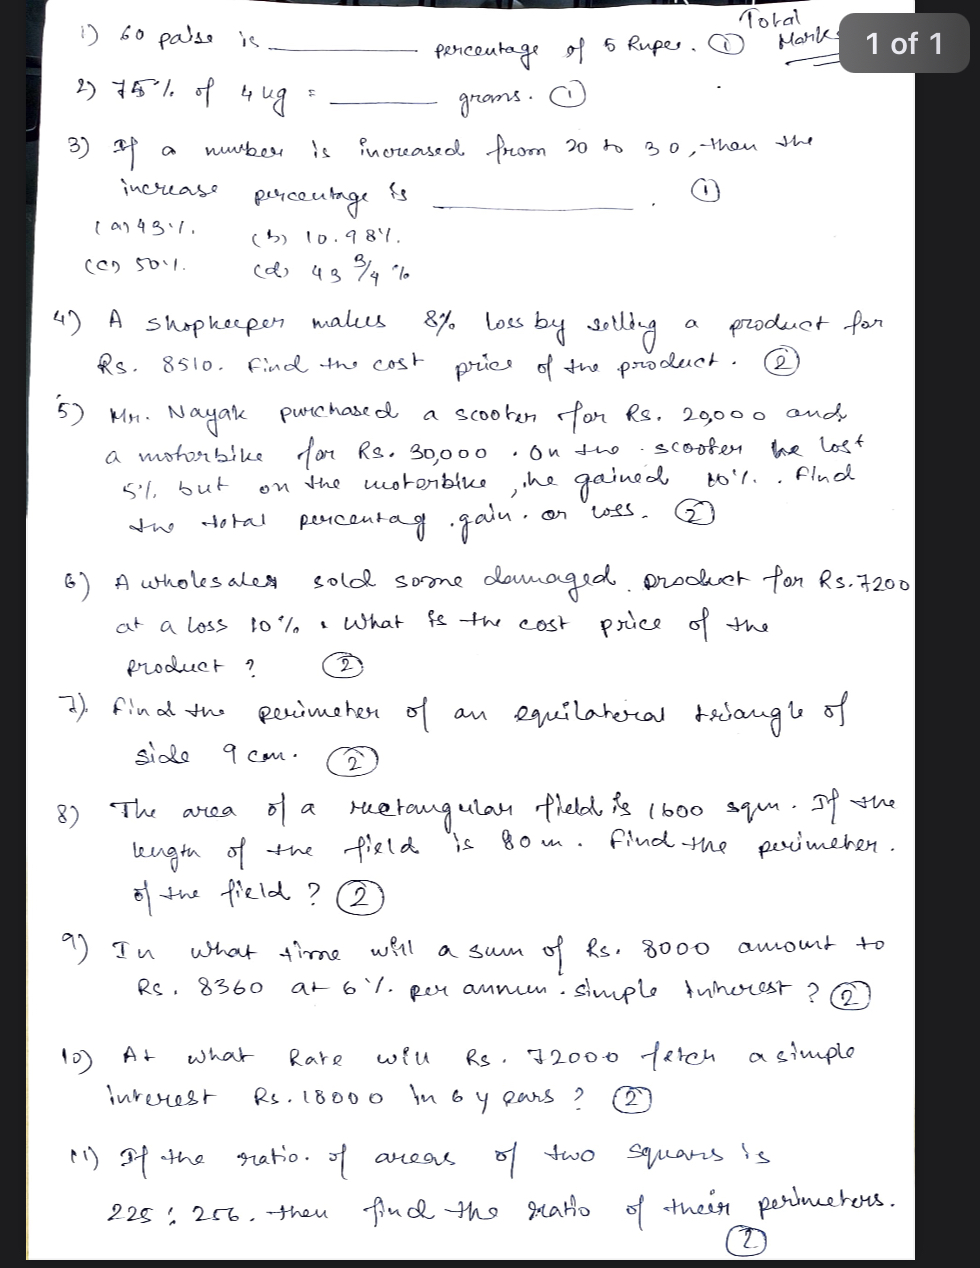 1) 60 paise is ________ percentage of 5 Rupee. (1) Total Marks
1 of 1
2) 75% of 4 kg = ________ grams. (1)
3) If a number is increased from 20 to 30, then the
increase percentage is ________. (1)
(a) 43%. (b) 10.98%.
(c) 50%. (d) 43 3/4 %
4) A shopkeeper makes 8% loss by selling a product for
Rs. 8510. Find the cost price of the product. (2)
5) Mr. Nayak purchased a scooter for Rs. 20,000 and
a motorbike for Rs. 30,000. On the scooter he lost
5% but on the motorbike, he gained 10%. Find
the total percentag gain or loss. (2)
6) A wholesaler sold some damaged product for Rs. 7200
at a loss 10%. What is the cost price of the
product? (2)
7). Find the perimeter of an equilateral triangle of
side 9 cm. (2)
8) The area of a rectangular field is 1600 sqm. If the
length of the field is 80 m. Find the perimeter.
of the field? (2)
9) In what time will a sum of Rs. 8000 amount to
Rs. 8360 at 6%. per annum simple Interest? (2)
10) At what Rate will Rs. 72000 fetch a simple
interest Rs. 18000 in 6 years? (2)
11) If the ratio of areas of two squares is
225 : 256. then find the ratio of their perimeters.
(2)